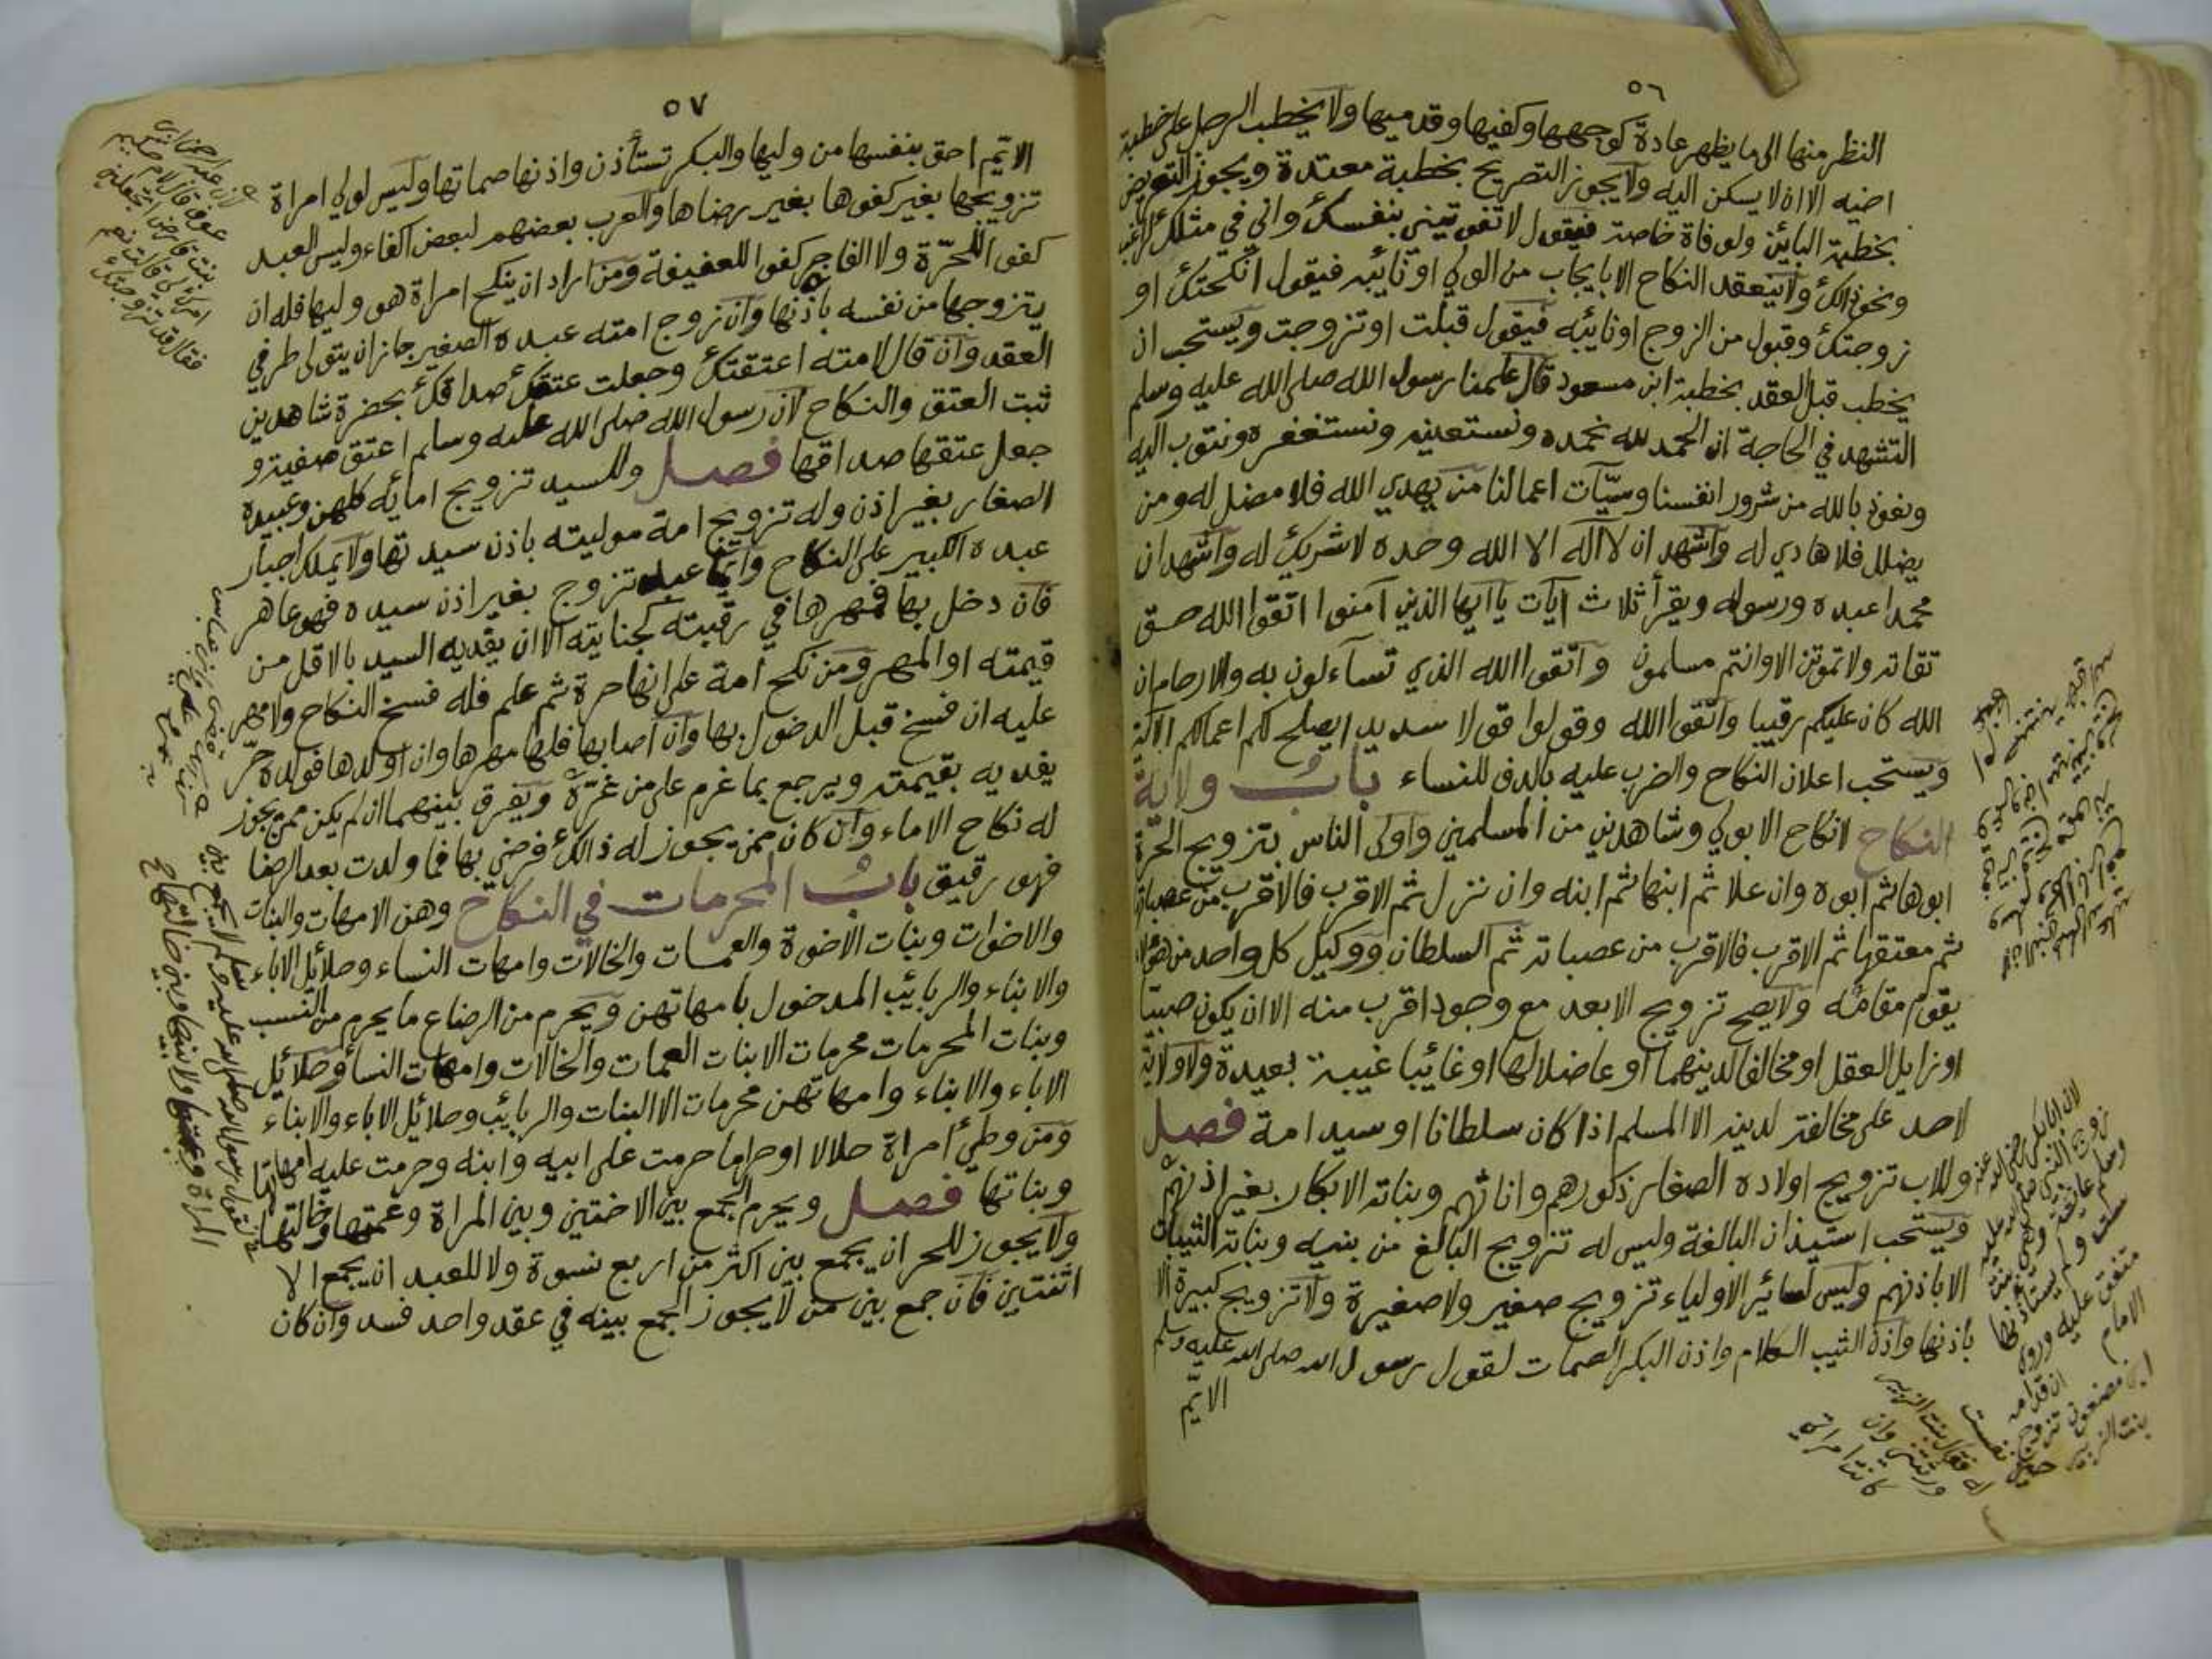 ٥٦
النظر منها الى ما يظهر عادة كوجهها وكفيها وقدميها ولا يخطب الرجل على خطبة
اخيه الا ان لا يسكن اليه ولا يجوز التصريح بخطبة معتدة ويجوز التعريض
بخطبة البائن ولوفاة خاصة فيقول لا تفوتيني بنفسك واني في مثلك لراغب
ونحو ذالك ولا ينعقد النكاح الا بايجاب من الولي او نائبه فيقول انكحتك او
زوجتك وقبول من الزوج او نائبه فيقول قبلت او تزوجت ويستحب ان
يخطب قبل العقد بخطبة ابن مسعود قال علمنا رسول الله صلى الله عليه وسلم
التشهد في الحاجة ان الحمد لله نحمده ونستعينه ونستغفره ونتوب اليه
ونعوذ بالله من شرور انفسنا وسيّآت اعمالنا من يهدي الله فلا مضل له ومن
يضلل فلا هادي له واشهد ان لا اله الا الله وحده لا شريك له واشهد ان
محمدا عبده ورسوله ويقرأ ثلاث آيات يا ايها الذين آمنوا اتقوا الله حق
تقاته ولا تموتن الا وانتم مسلمون واتقوا الله الذي تسآءلون به والارحام ان
الله كان عليكم رقيبا واتقوا الله وقولوا قولا سديدا يصلح لكم اعمالكم الآية
ويستحب اعلان النكاح والضرب عليه بالدف للنساء باب ولاية
النكاح لا نكاح الا بولي وشاهدين من المسلمين واولى الناس بتزويج الحرة
ابوها ثم ابوه وان علا ثم ابنها ثم ابنه وان نزل ثم الاقرب فالاقرب من عصباتها
ثم معتقها ثم الاقرب فالاقرب من عصباته ثم السلطان ووكيل كل واحد من هؤلاء
يقوم مقامه ولا يصح تزويج الابعد مع وجود اقرب منه الا ان يكون صبيا
او زايل العقل او مخالفا لدينهما او عاضلا لها او غائبا غيبة بعيدة ولا ولاية
لاحد على مخالف لدينه الا المسلم اذا كان سلطانا او سيد امة فصل
وللاب تزويج اولاده الصغار ذكورهم واناثهم وبناته الابكار بغير اذنهم
ويستحب استيذان البالغة وليس له تزويج البالغ من بنيه وبناته الثيبات
الا باذنهم وليس لسائر الاولياء تزويج صغير ولا صغيرة ولا تزويج كبيرة الا
باذنها واذن الثيب الكلام واذن البكر الصمات لقول رسول الله صلى الله عليه وسلم
الايّم
لان ابا بكر رضي الله عنه
زوج النبي صلى الله عليه
وسلم عائشة وهي بنت
ست ولم يستأذنها
متفق عليه وروي
الامام
ان قدامه
ابن مضعون تزوج
بنت الزبير حين نفست
له فقال بنت الزبير
ورثتني وان
كانت امراتي
٥٧
الايّم احق بنفسها من وليها والبكر تستأذن واذنها صماتها وليس لولي امراة
تزويجها بغير كفوها بغير رضاها والعرب بعضهم لبعض اكفاء وليس العبد
كفى اللحرة ولا الفاجر كفوا للعفيفة ومن اراد ان ينكح امراة هو وليها فله ان
يتزوجها من نفسه باذنها وان زوج امته عبده الصغير جاز ان يتولى طرفي
العقد وان قال لامته اعتقتك وجعلت عتقك صداقك بحضرة شاهدين
ثبت العتق والنكاح لان رسول الله صلى الله عليه وسلم اعتق صفية و
جعل عتقها صداقها فصل وللسيد تزويج امائه كلهن وعبيده
الصغار بغير اذن وله تزويج امة موليته باذن سيدتها ولا يملك اجبار
عبده الكبير على النكاح وايما عبد تزوج بغير اذن سيده فهو عاهر
فان دخل بها فمهرها في رقبته كجنايته الا ان يفديه السيد بالاقل من
قيمته او المهر ومن نكح امة على انها حرة ثم علم فله فسخ النكاح ولا مهر
عليه ان فسخ قبل الدخول بها وان اصابها فلها مهرها وان اولدها فولده حر
يفديه بقيمته ويرجع بما غرم على من غرّه ويفرق بينهما ان لم يكن ممن يجوز
له نكاح الاماء وان كان ممن يجوز له ذالك فرضي بها فما ولدت بعد الرضا
فهو رقيق باب المحرمات في النكاح وهن الامهات والبنات
والاخوات وبنات الاخوة والعمات والخالات وامهات النساء وحلائل الاباء
والابناء والربائب المدخول بامهاتهن ويحرم من الرضاع ما يحرم من النسب
وبنات المحرمات محرمات الا بنات العمات والخالات وامهات النساء وحلائل
الاباء والابناء وامهاتهن محرمات الا البنات والربائب وحلائل الاباء والابناء
ومن وطئ امراة حلالا او حراما حرمت على ابيه وابنه وحرمت عليه امهاتها
وبناتها فصل ويحرم الجمع بين الاختين وبين المراة وعمتها وخالتها
ولا يجوز للحر ان يجمع بين اكثر من اربع نسوة ولا للعبد ان يجمع الا
اثنتين فان جمع بين من لا يجوز الجمع بينه في عقد واحد فسد وان كان
لان عبد الرحمن ابن
عوف قال لام حكيم
بنت قارض اتجعلين
امرك لي قالت نعم
فقال قد تزوجتك
لقول رسول الله صلى الله عليه وسلم لا يجمع بين
المراة وعمتها ولا بينها وبين خالتها